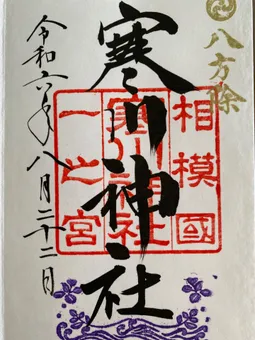 八方除
相模國
寒川神社
寒川神社
一之宮
令和六年八月二十二日